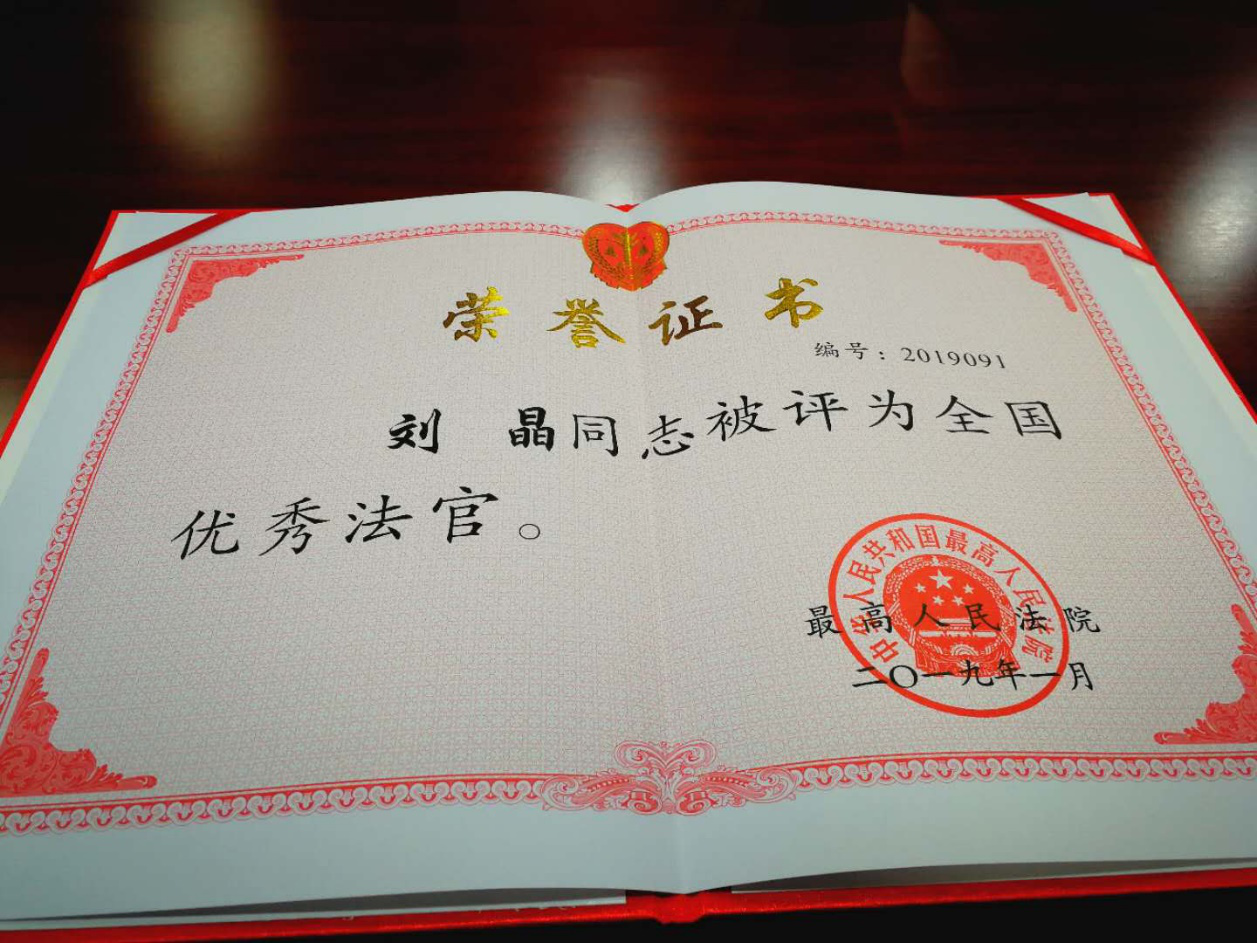 荣誉证书
编号：2019091
刘 晶同志被评为全国
优秀法官。
中华人民共和国最高人民法院
最高人民法院
二〇一九年一月